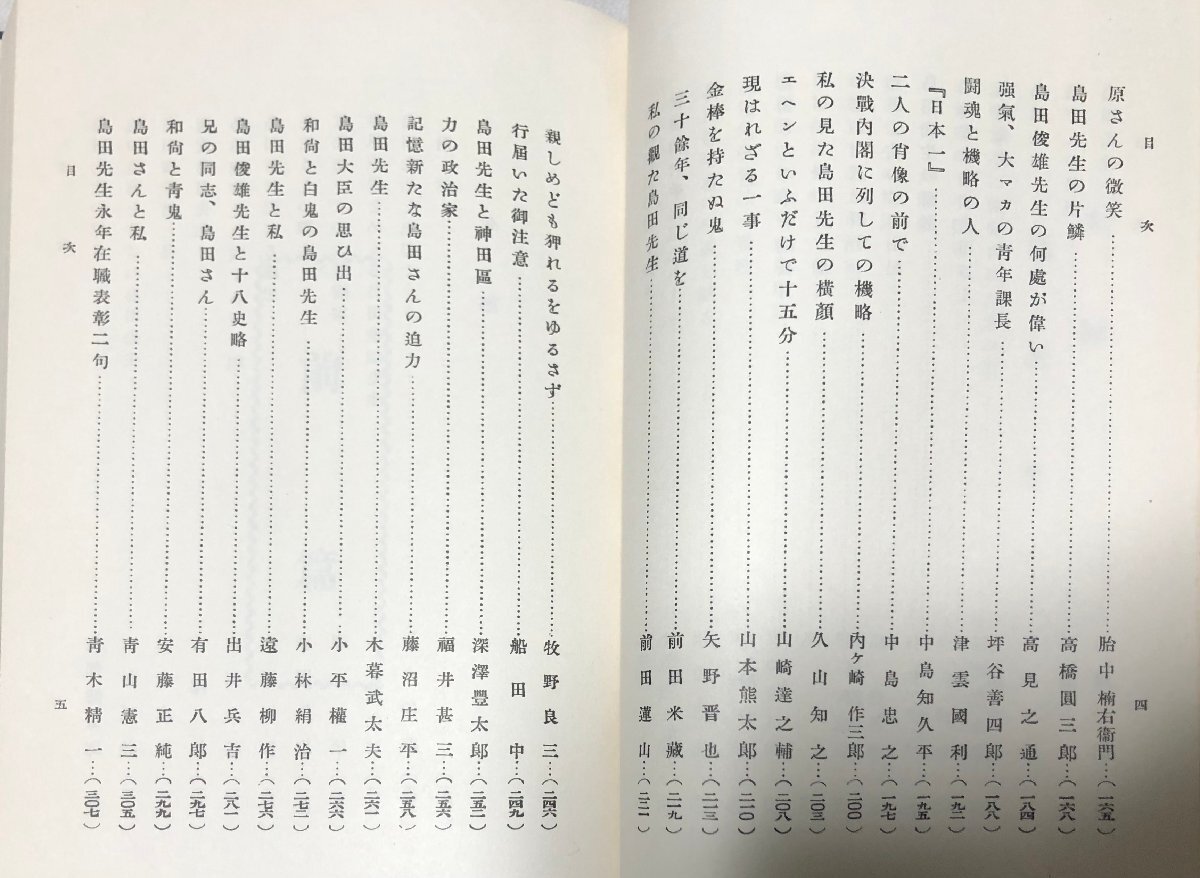 目次
四
原さんの微笑……胎中楠右衞門…(一六五)
島田先生の片鱗……高橋圓三郎…(一六八)
島田俊雄先生の何處が偉い……高見之通…(一八四)
强氣、大マカの靑年課長……坪谷善四郎…(一八八)
鬪魂と機略の人……津雲國利…(一九二)
『日本一』……中島知久平…(一九五)
二人の肖像の前で……中島忠之…(一九七)
決戰內閣に列しての機略……內ヶ崎作三郎…(二〇〇)
私の見た島田先生の橫顏……久山知之…(二〇三)
エヘンといふだけで十五分……山崎達之輔…(二〇八)
現はれざる一事……山本熊太郞…(二一〇)
金棒を持たぬ鬼……矢野晋也…(二一三)
三十餘年、同じ道を……前田米藏…(二一九)
私の觀た島田先生……前田蓮山…(二二一)
親しめども狎れるをゆるさず……牧野良三…(二四六)
行屆いた御注意……船田中…(二四九)
島田先生と神田區……深澤豐太郞…(二五二)
力の政治家……福井甚三…(二五六)
記憶新たな島田さんの迫力……藤沼庄平…(二五八)
島田先生……木暮武太夫…(二六一)
島田大臣の思ひ出……小平權一…(二六六)
和尙と白鬼の島田先生……小林絹治…(二七二)
島田先生と私……遠藤柳作…(二七六)
島田俊雄先生と十八史略……出井兵吉…(二八一)
兄の同志、島田さん……有田八郞…(二九七)
和尙と靑鬼……安藤正純…(二九九)
島田さんと私……靑山憲三…(三〇五)
島田先生永年在職表彰二句……靑木精一…(三〇七)
目次
五